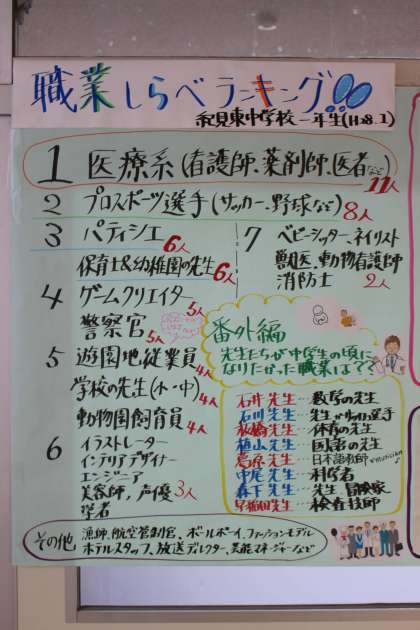 職業しらべランキング!!
東中学校一年生(H28.1)
1 医療系(看護師、薬剤師、医者など)
11人
2 プロスポーツ選手(サッカー、野球など)8人
3 パティシエ 6人
保育士&幼稚園の先生 6人
4 ゲームクリエイター 5人
警察官 5人
5 遊園地従業員 4人
学校の先生(小・中) 4人
動物園飼育員 4人
6 イラストレーター
インテリアデザイナー
エンジニア
美容師、声優 3人
学者
7 ベビーシッター、ネイリスト
獣医、動物看護師
消防士 2人
番外編
先生たちが中学生の頃に
なりたかった職業は???
石井先生…数学の先生
石川先生…先生かサッカー選手
板橋先生…体育の先生
植山先生…国語の先生
葛原先生…日本語教師
中尾先生…科学者
森下先生…先生、冒険家
早稲田先生…検査技師
その他
漁師、航空管制官、ボールボーイ、ファッションモデル
ホテルスタッフ、放送ディレクター、芸能マネージャーなど